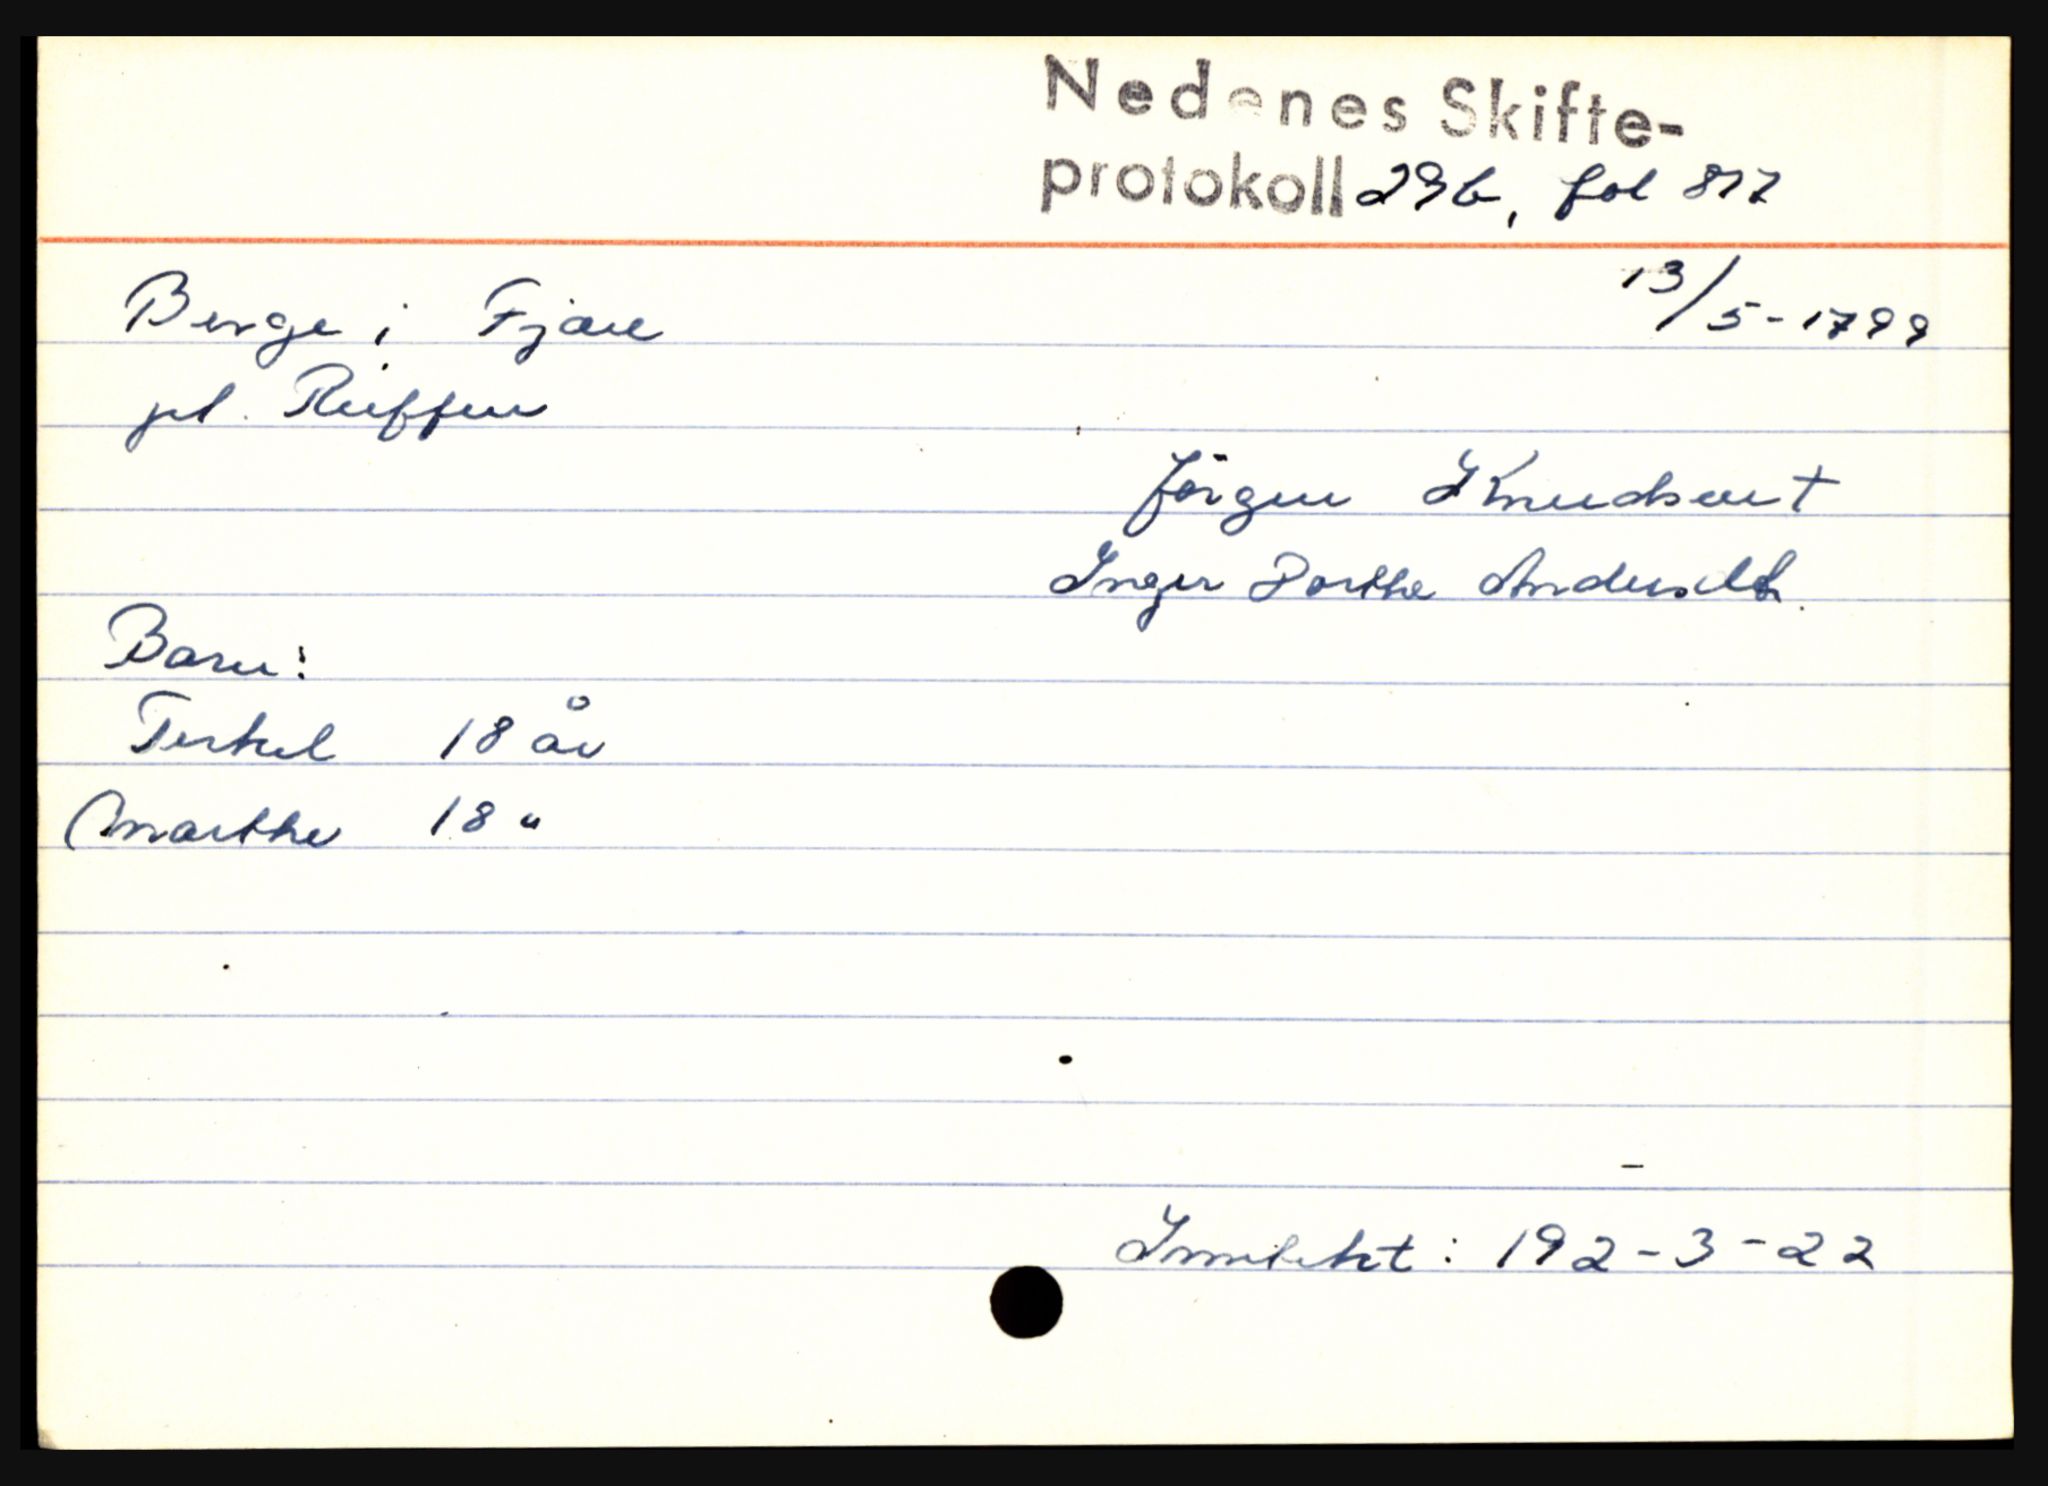 Nedenes Skifte-
protokoll 29b, fol 817
13/5-1799
Berge i Fjære
pl. Reiffen
Jörgen Knudsen †
Inger Dorthe Andersdt.
Barn:
Terkel 18 år
Marthe 18 "
Inntekt: 192-3-22